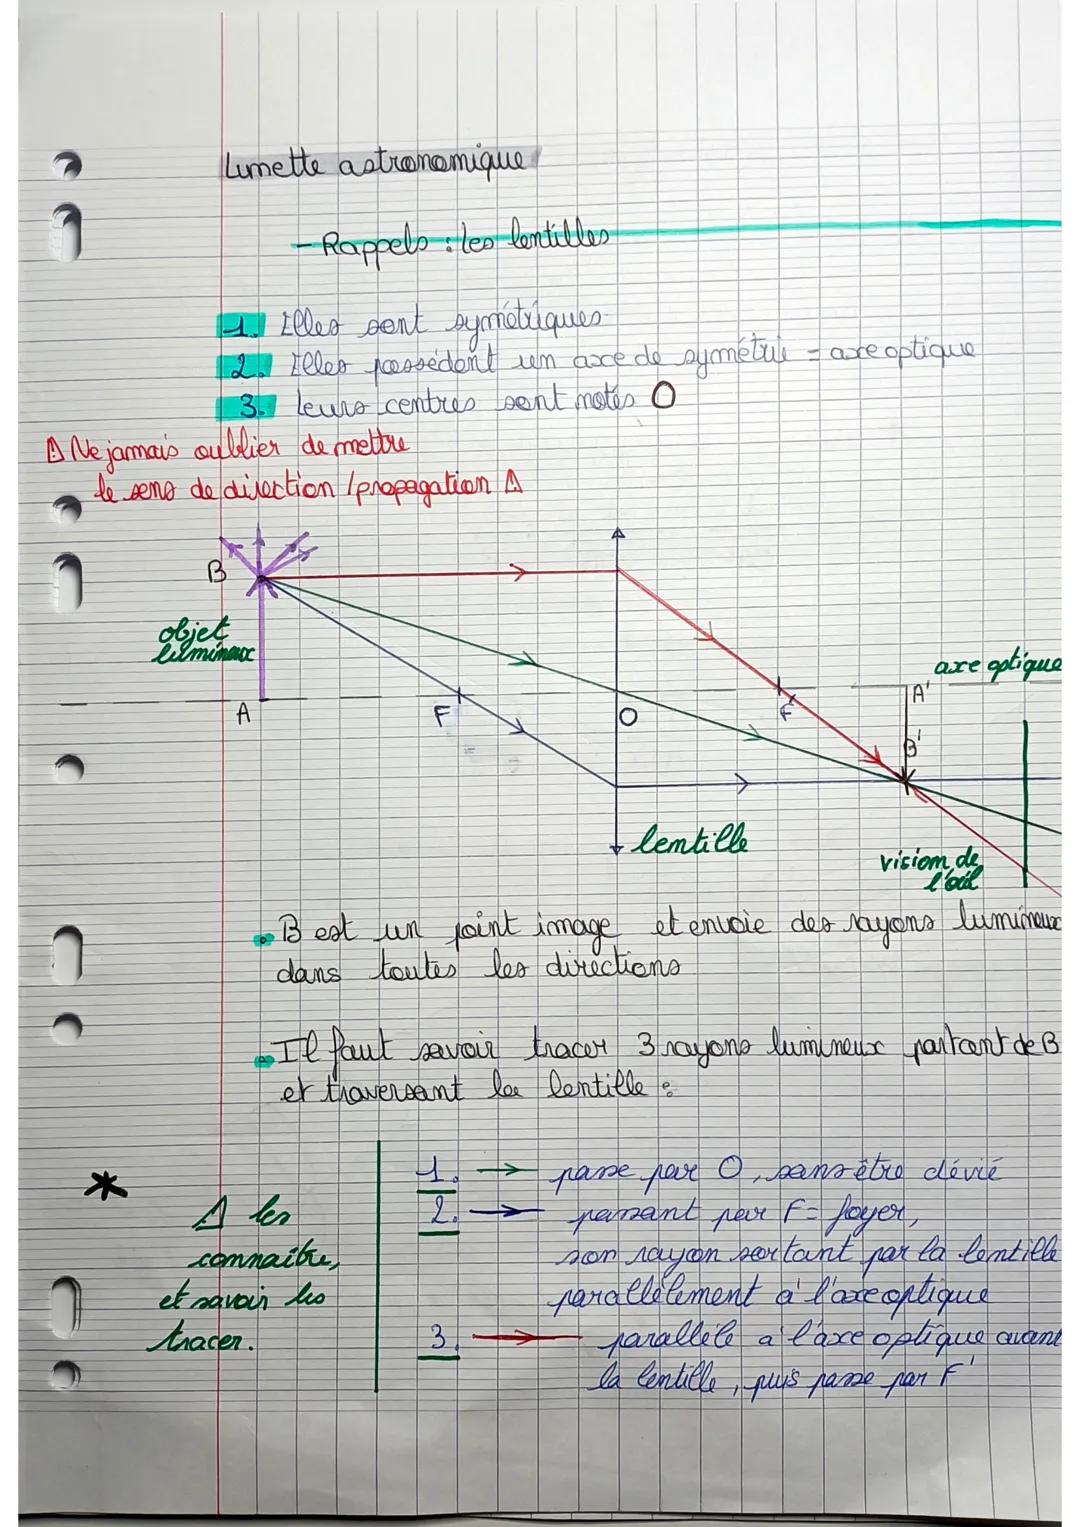 Lunette astronomique
- Rappels : les lentilles
1. Elles sont symétriques
2. Elles possédent un axe de symétrie = axe optique
3. leurs centres sont notés O
⚠ Ne jamais oublier de mettre
le sens de direction / propagation ⚠
B
objet
lumineux
A
F
O
F'
axe optique
A'
B'
lentille
vision de
l'œil
• B est un point image et envoie des rayons lumineux
dans toutes les directions
• Il faut savoir tracer 3 rayons lumineux partant de B
et traversant la lentille :
* ⚠ les
connaître,
et savoir les
tracer.
1. → passe par O, sans être dévié
2. → passant par F = foyer,
son rayon sortant par la lentille
parallèlement à l'axe optique
3. → parallèle a l'axe optique avant
la lentille, puis passe par F'